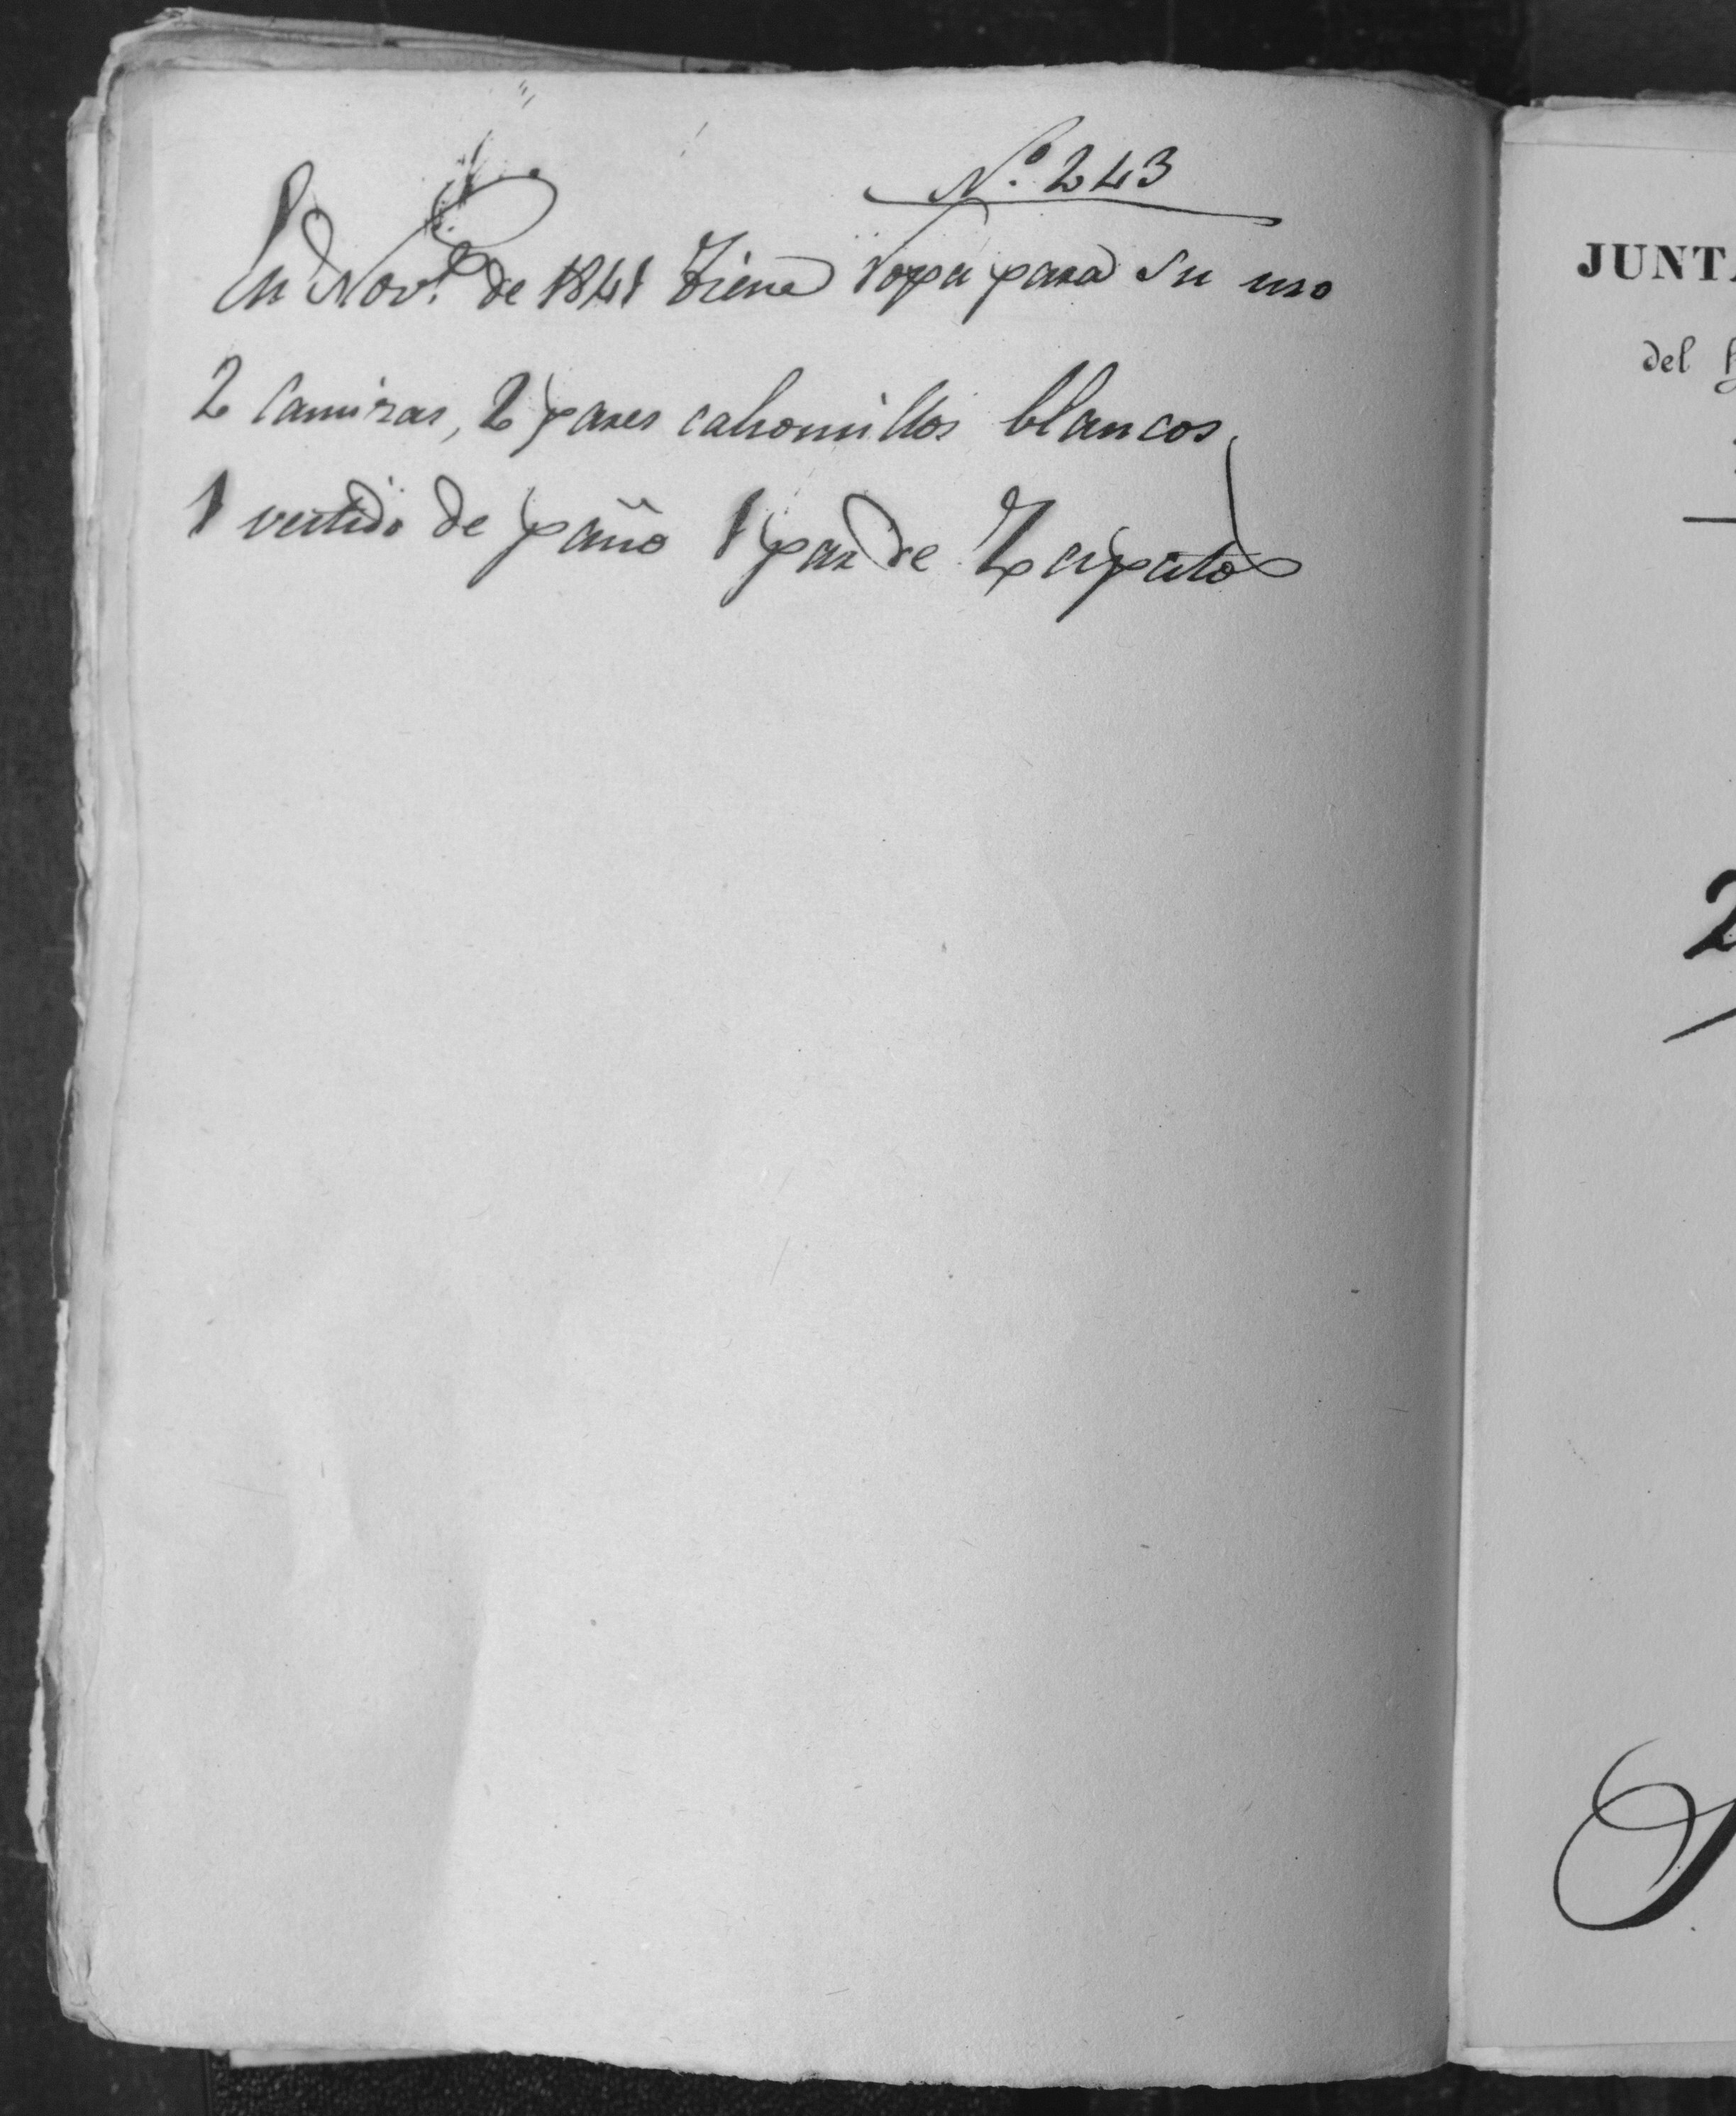 Nº. 243
En Nov.e de 1841 tiene Ropa para su uso
2 Camizas, 2 pares calsonsillos blancos,
1 vestido de paño 1 par de Zapatos
JUNT
del
2